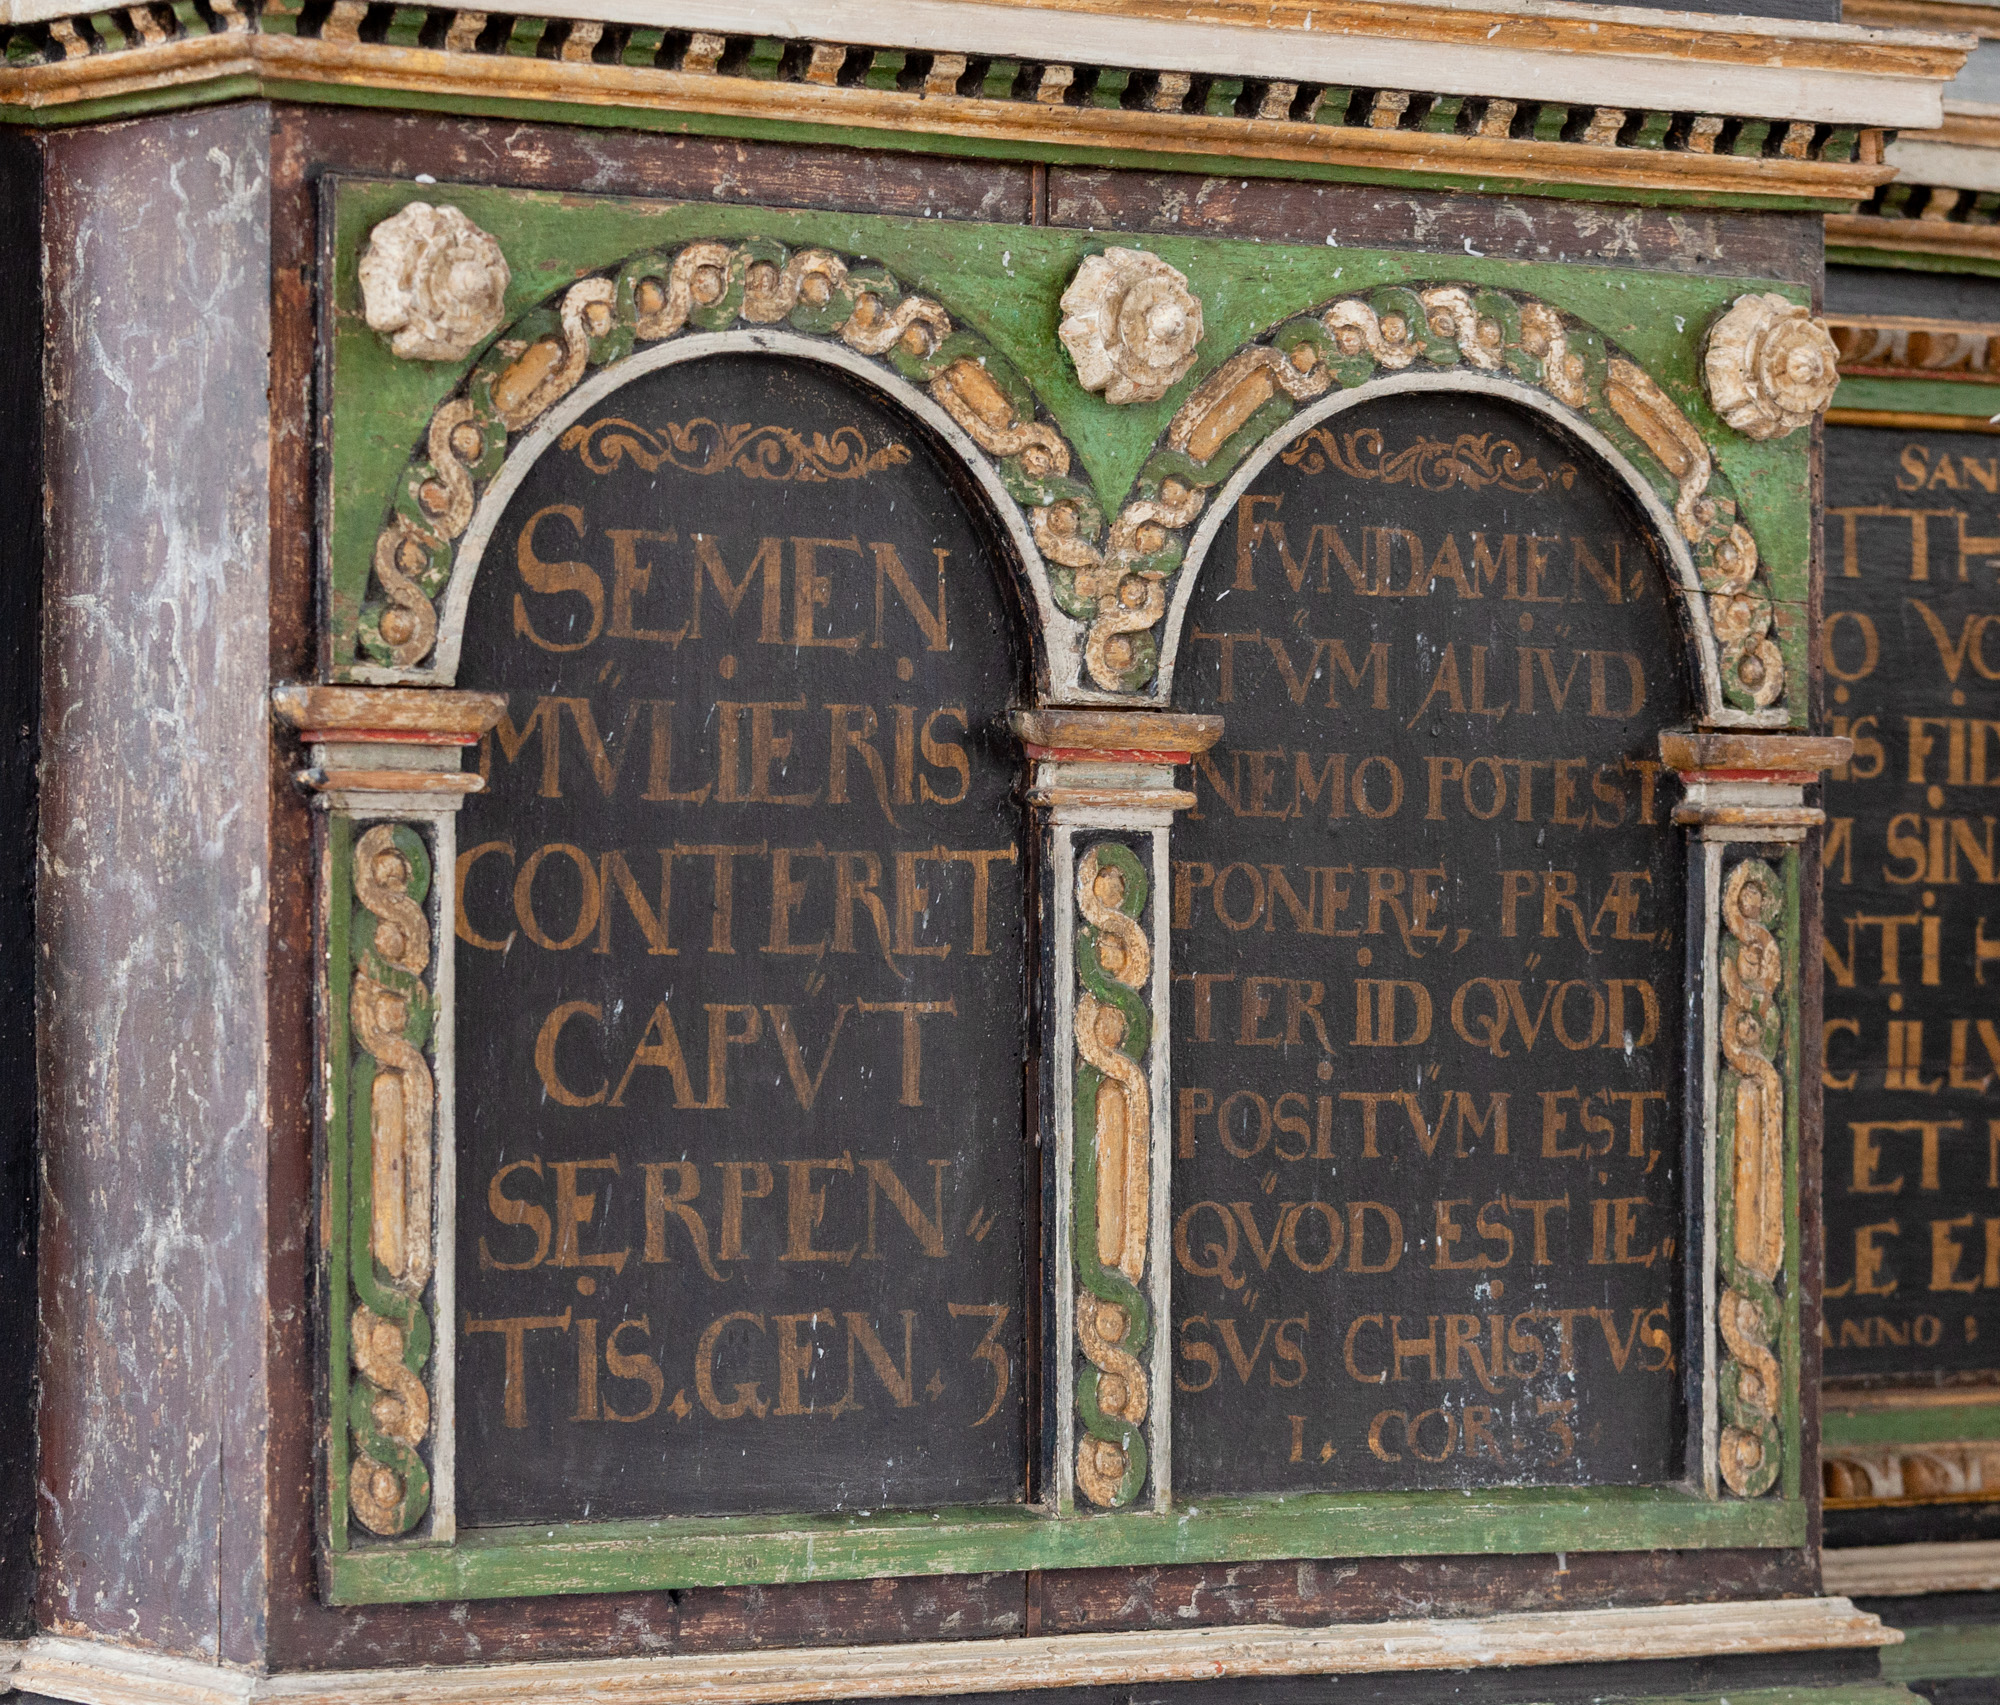 SEMEN
MVLIERIS
CONTERET
CAPVT
SERPEN〃
TIS. GEN. 3
FVNDAMEN〃
TVM ALIVD
NEMO POTEST
PONERE, PRÆ〃
TER ID QVOD
POSITVM EST,
QVOD EST IE〃
SVS CHRISTVS.
1, COR. 3.
ET
ANNO :